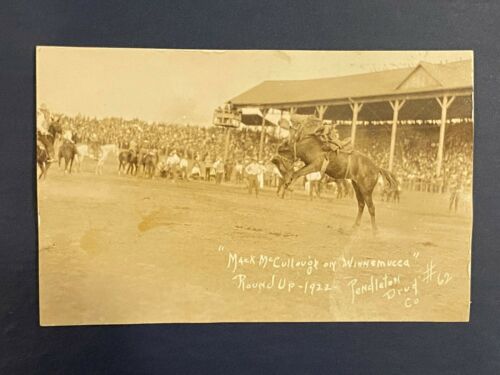 "Mack McCullough on Winnemucca"
Round Up - 1922 - Pendleton Drug Co #62